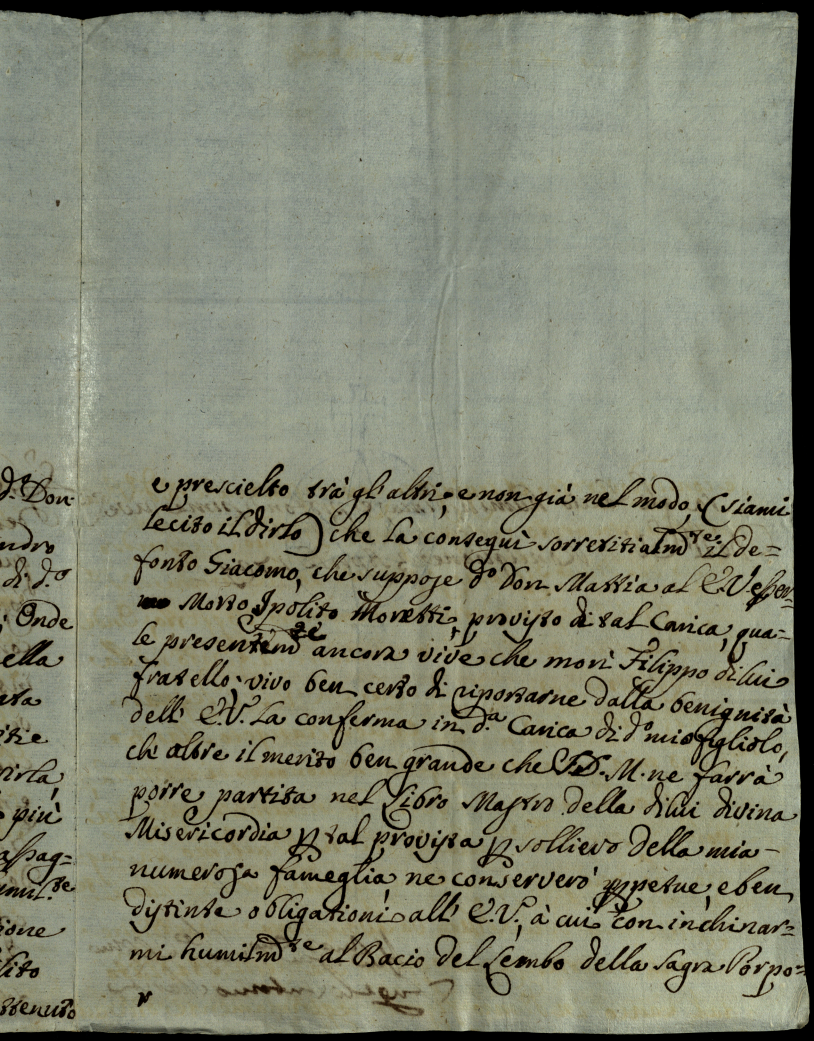 d.º Don
ndro
di d.º
; Onde
ella
ata
itie
rirla,
più
assag=
imil.te
ione
lito
ttenuto
e prescielto trà gl'altri, e non già nel modo, (siami
lecito il dirlo) che la conseguì sorretitialm.te il de=
fonto Giacomo, che suppose d.º Don Mattia al E.V. esser
Morto Ipolito Moretti, provisto di tal Carica, qua=
le presentem.te ancora vive che morì Filippo di lui
fratello; vivo ben certo di riportarne dalla benignità
dell' E.V. la conferma in d.ª Carica di d.º mio figliolo,
ch' oltre il merito ben grande che S.D.M. ne farrà
porre partita nel Libro Mastro della di lui divina
Misericordia p tal provista p sollievo della mia
numerosa fameglia ne conserverò ppetue e ben
distinte obligationi all' E.V., à cui con inchinar=
mi humilm.te al Bacio del Lembo della Sagra Porpo=
r